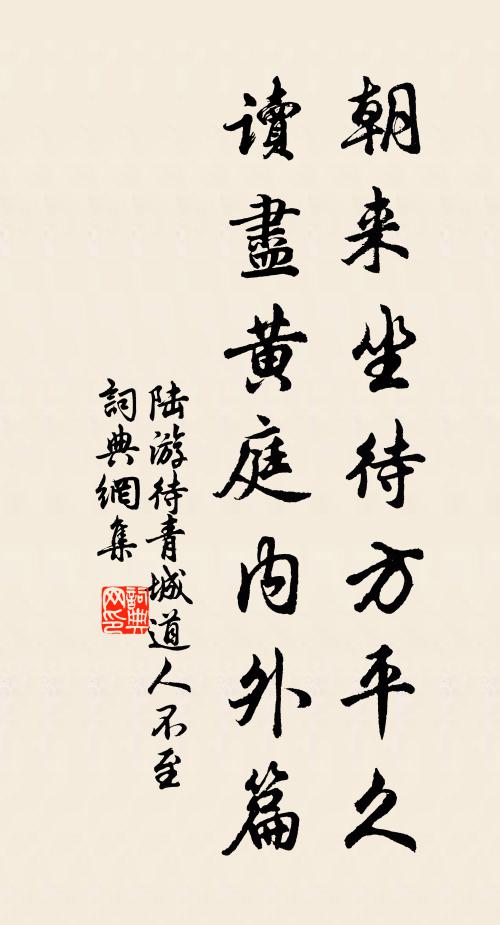 朝来坐待方平久
讀盡黄庭内外篇
陆游待青城道人不至
詞典網集
詞典网印